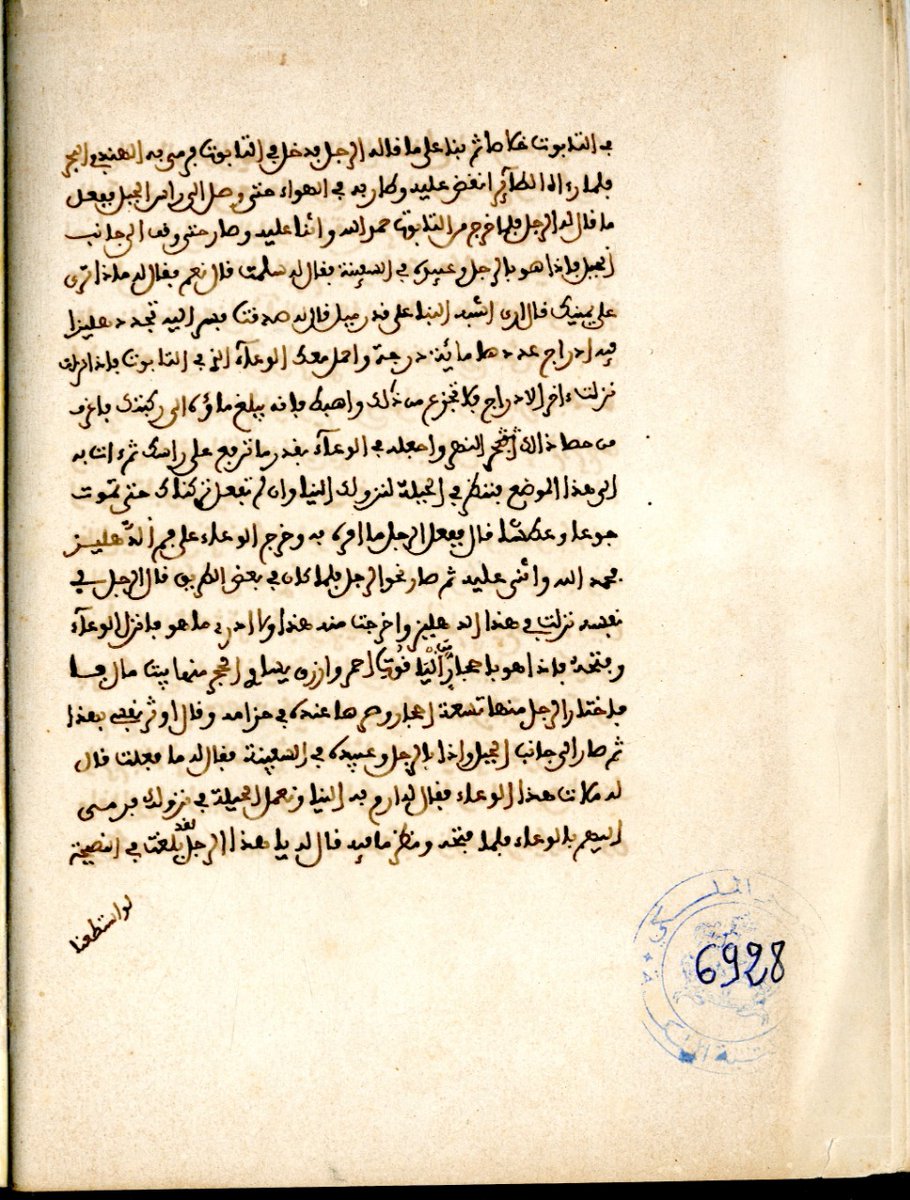 في التابوت غلاما ثم بنا على ما قاله الرجل فدخل في التابوت فرمى به الهندي في البحر
فلما رءاه الطآئر انقض عليه وطار به في الهواء حتى وصل الى راس الجبل ففعل
ما قال له الرجل فلما خرج من التابوت حمد الله واثنا عليه وصار حتى وقف الى جانب
الجبل فاذا هو بالرجل وعبيده في السفينة فقال له سلمت قال نعم فقال له ماذا ترى
على يمينك قال ارى اشبه البنا على قدر ميل قال له صدقت فسر اليه تجد دهليزا
فيه ادراج عددها مائة درجة واحمل معك الوعآء الذي في التابوت فاذا نزلت
نزلت ءاخر الادراج فلا تجزع من ذلك واهبط فانه يبلغ ماؤه الى ركبتك فاغرف
من حصا ذالك النهر واجعله في الوعآء بقدر ما ترفع على راسك ثم ءات به
الى هذا الموضع فننظر في الحيلة لنزولك الينا وان لم تفعل تركناك حتى تموت
جوعا وعطشا قال ففعل الرجل ما امره به وخرج الوعاء على فم الدهليز
فحمد الله واثنى عليه ثم صار نحو الرجل فلما كان في بعض الطريق قال الرجل في
نفسه نزلت في هذا الدهليز واخرجت منه هذا ولا ادري ما هو فانزل الوعآء
وفتحه فاذا هو باحجار الياقوت احمر وازرق يساوي الحجر منها بيت مال
فاختار الرجل منها تسعة احجار وصرها عنده في حزامه وقال اوثر نفسي بهذا
ثم صار الى جانب الجبل واذا بالرجل وعبيده في السفينة فقال له ما فعلت قال
له ملات هذا الوعاء فقال له ارم به الينا ونعمل الحيلة في نزولك فرمى
اليهم بالوعاء فلما فتحه ونظر ما فيه قال له يا هذا الرجل لقد بلغت في النصيحة
لو استطعنا
6928